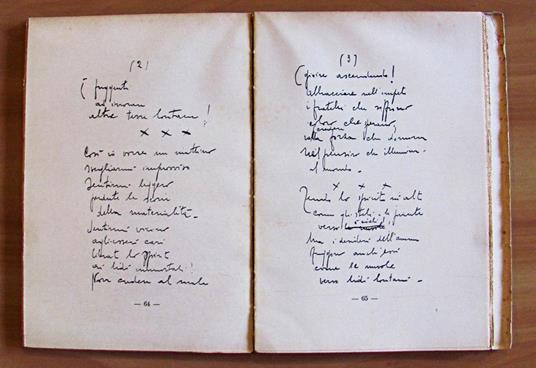 (2)
fuggenti
ad incontrar
altre terre lontane!
x x x
Così io vorrei un mattino
svegliarmi improvviso
Sentirmi leggero
perdute le forme
della materialità.
Sentirmi vicino
agli esseri cari
liberato lo spirito
ai lidi immortali!
Non cedere al male
— 64 —
(3)
gioire ascendendo!
Abbracciare nell'impeto
i fratelli che soffrono
coloro che penano,
nella forza che
nel pensiero che illumina
il mondo.
x x x
Tendo lo spirito in alto
come gli steli, le piante
verso i cieli!
Ma i desideri dell'anima
fuggono anch'essi
come le nuvole
verso lidi lontani.
— 65 —